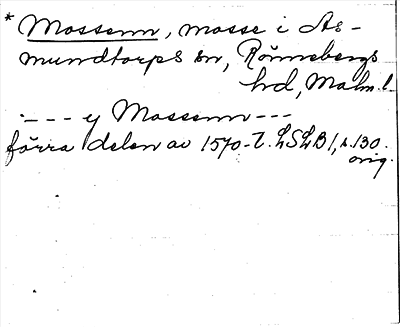 * Mossenn, mosse i As-
mundtorps sn, Rönnebergs
hd, Malm. l.
- - - y Mossenn - - -
förra delen av 1570-t. LSLB 1, s. 130.
orig.